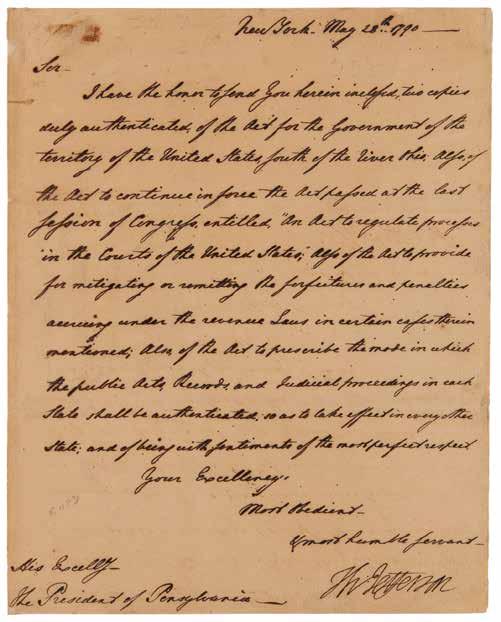 New York. May 28th. 1790
Sir
I have the honor to send You herein inclosed, two copies
duly authenticated, of the Act for the Government of the
territory of the United States, south of the river Ohio. Also, of
the Act to continue in force the Act passed at the last
session of Congress, entitled, "An Act to regulate processes
in the Courts of the United States;" Also of the Act to provide
for mitigating or remitting the forfeitures and penalties
accruing under the revenue Laws in certain cases therein
mentioned; Also, of the Act to prescribe the mode in which
the public Acts, Records, and Judicial proceedings in each
State shall be authenticated, so as to take effect in every other
State; and of being with sentiments of the most perfect respect
Your Excellency.
Most Obedient
& most humble servant
Th: Jefferson
His Excelly
The President of Pensylvania